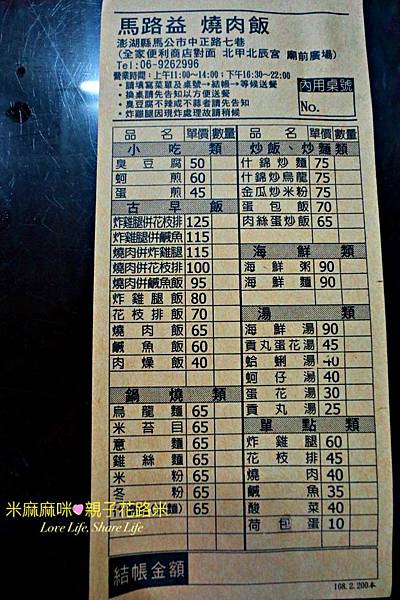 馬路益 燒肉飯
澎湖縣馬公市中正路七巷
(全家便利商店對面 北甲北辰宮 廟前廣場)
Tel:06-9262996
營業時間:上午11:00~14:00;下午16:30~22:00
・請填寫菜單及桌號→結帳→等候送餐
・換桌請先告知以方便送餐
・臭豆腐不辣或不蒜者請先告知
・炸雞腿因現炸處理故請稍候
內用桌號
No.
品名 單價 數量
小吃類
臭豆腐 50
蚵煎 60
蛋煎 45
古早飯
炸雞腿併花枝排 125
炸雞腿併鹹魚 115
燒肉併炸雞腿 115
燒肉併花枝排 100
燒肉併鹹魚飯 95
炸雞腿飯 80
花枝排飯 70
燒肉飯 65
鹹魚飯 60
肉燥飯 40
鍋燒類
烏龍麵 65
米苔目 65
意麵 65
雞絲麵 65
米粉 65
冬粉 65
麵) 65
品名 單價 數量
炒飯、炒麵類
什錦炒麵 75
什錦炒烏龍 75
金瓜炒米粉 75
蛋包飯 70
肉絲蛋炒飯 65
海鮮類
海鮮粥 90
海鮮麵 90
湯類
海鮮湯 90
貢丸蛋花湯 45
蛤蜊湯 40
蚵仔湯 40
蛋花湯 30
貢丸湯 25
單點類
炸雞腿 60
花枝排 45
燒肉 40
鹹魚 35
酸菜 40
荷包蛋 10
結帳金額
108.2.200本
米麻麻咪親子花路米
Love Life, Share Life